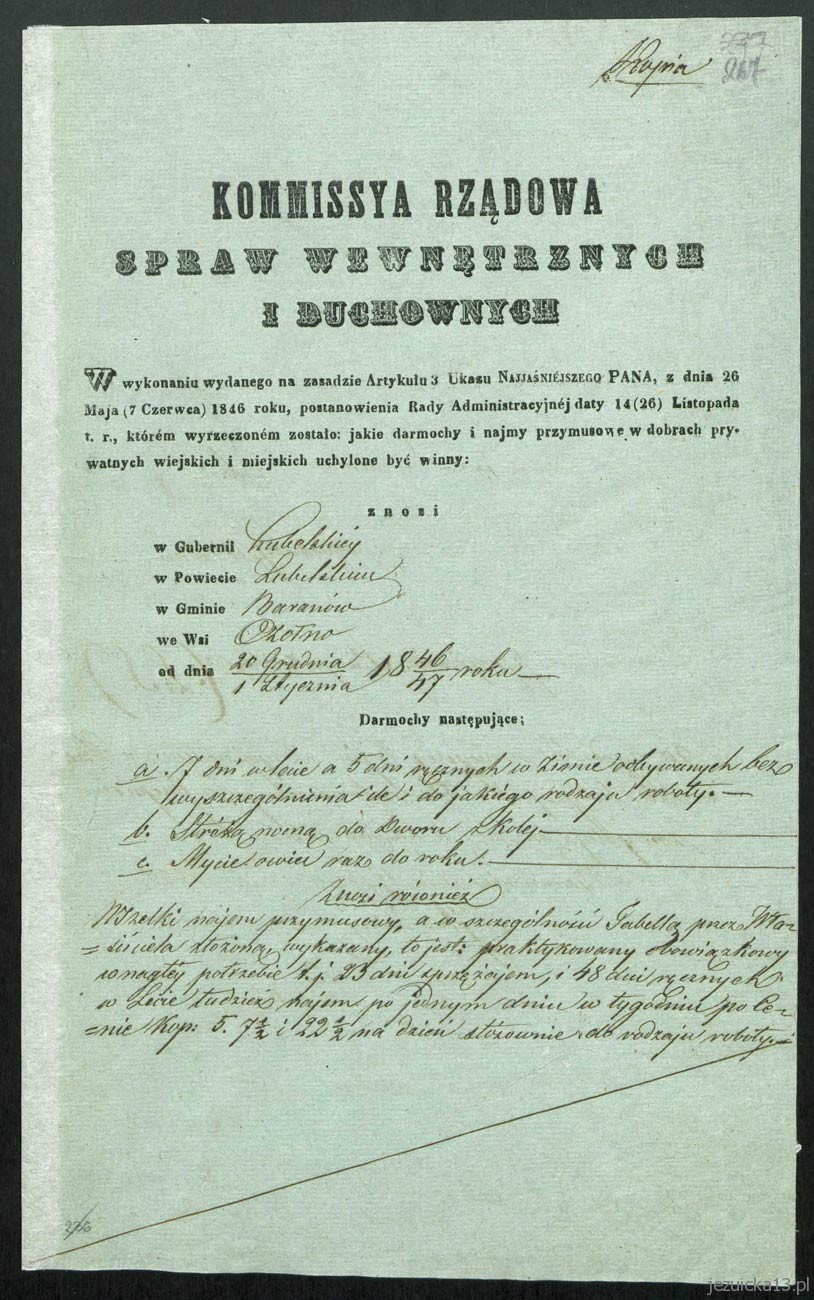 Kopia
267
KOMMISSYA RZĄDOWA
SPRAW WEWNĘTRZNYCH
I DUCHOWNYCH
W wykonaniu wydanego na zasadzie Artykułu 3 Ukazu NAJJAŚNIÉJSZEGO PANA, z dnia 26
Maja (7 Czerwca) 1846 roku, postanowienia Rady Administracyjnéj daty 14 (26) Listopada
t. r., którém wyrzeczoném zostało: jakie darmochy i najmy przymusowe w dobrach pry-
watnych wiejskich i miejskich uchylone być winny:
znosi
w Gubernii Lubelskiéj
w Powiecie Lubelskim
w Gminie Baranów
we Wsi Czołno
od dnia 20 Grudnia / 1 Stycznia 1846/47 roku —
Darmochy następujące;
a. 7 dni w lecie a 5 dni ręcznych w zimie odbywanych bez
wyszczególnienia ile i do jakiego rodzaju roboty. —
b. Stróżą nocną do Dworu z kolej
c. Mycie owiec raz do roku. —
Znosi również
Wszelki najem przymusowy, a w szczególności Tabellą przez Wła-
=ściciela złożoną, wykazany, to jest: praktykowany obowiązkowy
w nagłéj potrzebie t. j. 23 dni sprzężajem, i 48 dni ręcznych
w Lecie tudzież najem po jednym dniu w tygodniu po Ce-
=nie Kop: 5. 7½ i 22½ na dzień stosownie do rodzaju roboty. —
jezuicka13.pl